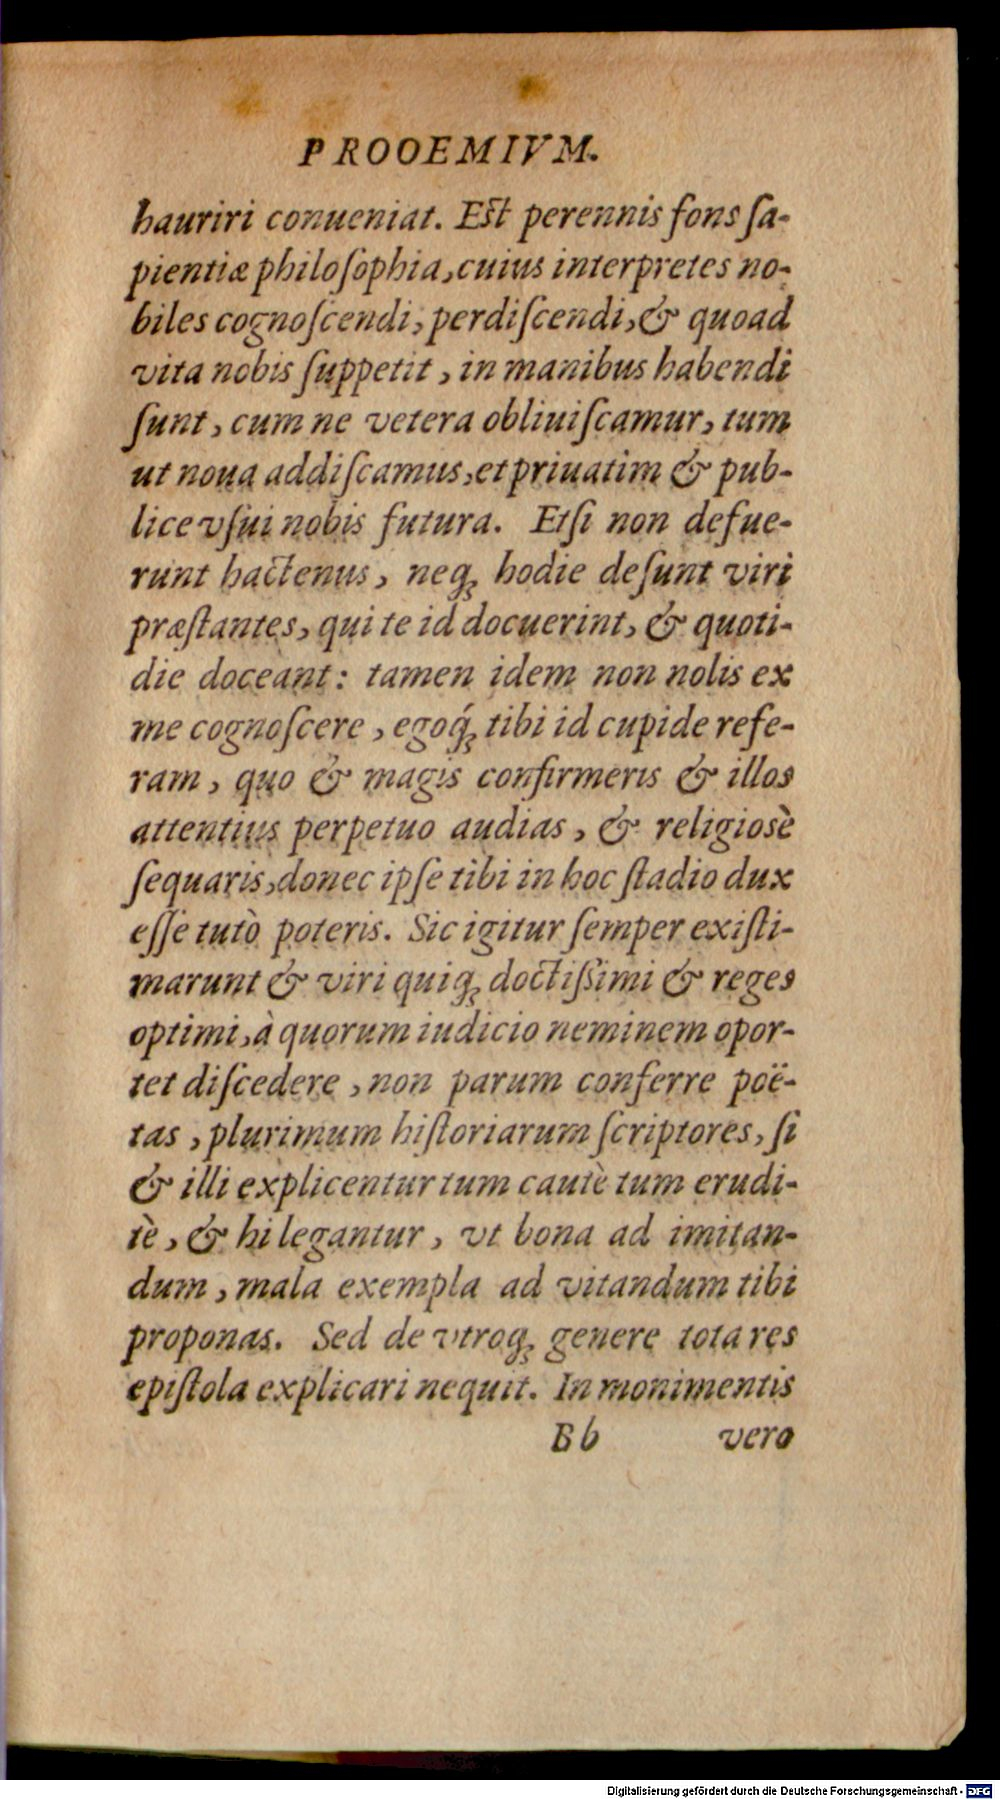 PROOEMIVM.
hauriri conueniat. Est perennis fons ſa-
pientiæ philoſophia, cuius interpretes no-
biles cognoſcendi, perdiſcendi, & quoad
vita nobis ſuppetit, in manibus habendi
ſunt, cum ne vetera obliuiſcamur, tum
ut noua addiſcamus, et priuatim & pub-
lice vſui nobis futura. Etſi non defue-
runt hactenus, neq; hodie deſunt viri
præſtantes, qui te id docuerint, & quoti-
die doceant: tamen idem non nolis ex
me cognoſcere, egoq́; tibi id cupide refe-
ram, quo & magis confirmeris & illos
attentius perpetuo audias, & religiosè
ſequaris, donec ipſe tibi in hoc ſtadio dux
eſſe tutò poteris. Sic igitur ſemper exiſti-
marunt & viri quiq; doctiſsimi & reges
optimi, à quorum iudicio neminem opor-
tet diſcedere, non parum conferre poë-
tas, plurimum hiſtoriarum ſcriptores, ſi
& illi explicentur tum cautè tum erudi-
tè, & hi legantur, vt bona ad imitan-
dum, mala exempla ad vitandum tibi
proponas. Sed de vtroq; genere tota res
epiſtola explicari nequit. In monimentis
Bb vero
Digitalisierung gefördert durch die Deutsche Forschungsgemeinschaft - DFG